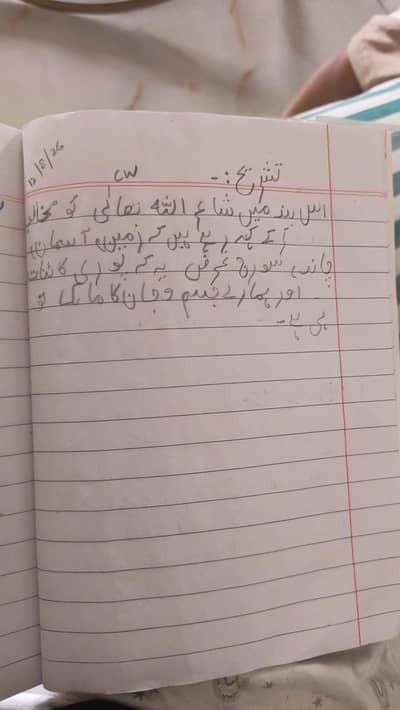 CW
تشریح:-
اس بند میں شاعر اللہ تعالیٰ کو مخاطب
کے کہہ رہے ہیں کہ زمین، آسمان،
چاند، سورج غرض یہ کہ پوری کائنات
اور ہمارے جسم و جان کا مالک تو
ہی ہے-